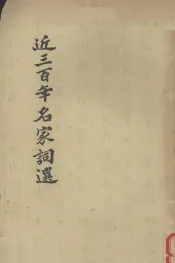 近三百年名家詞選